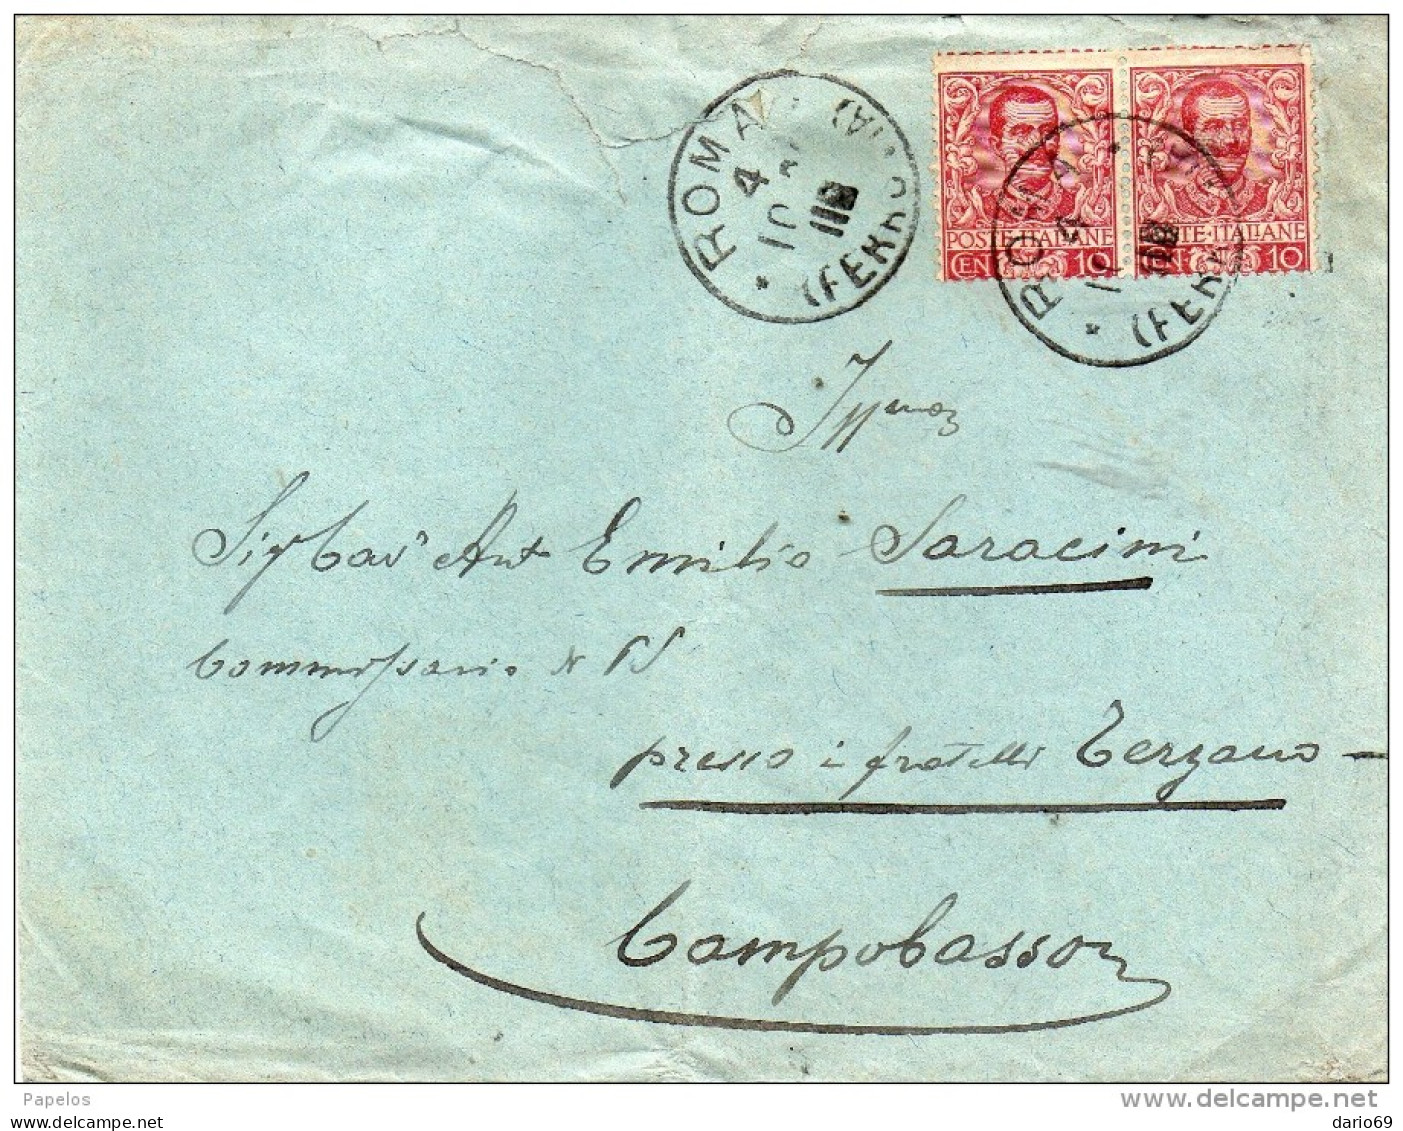 ROMA (FERROVIA)
4
10
POSTE·ITALIANE
CEN 10
POSTE·ITALIANE
CEN 10
ROMA (FERR
4
Sigr Cavr Avt Emilio Saracini
Commissario PS
presso i fratelli Terzano
Campobasso
Papelos
www.delcampe.net
dario69